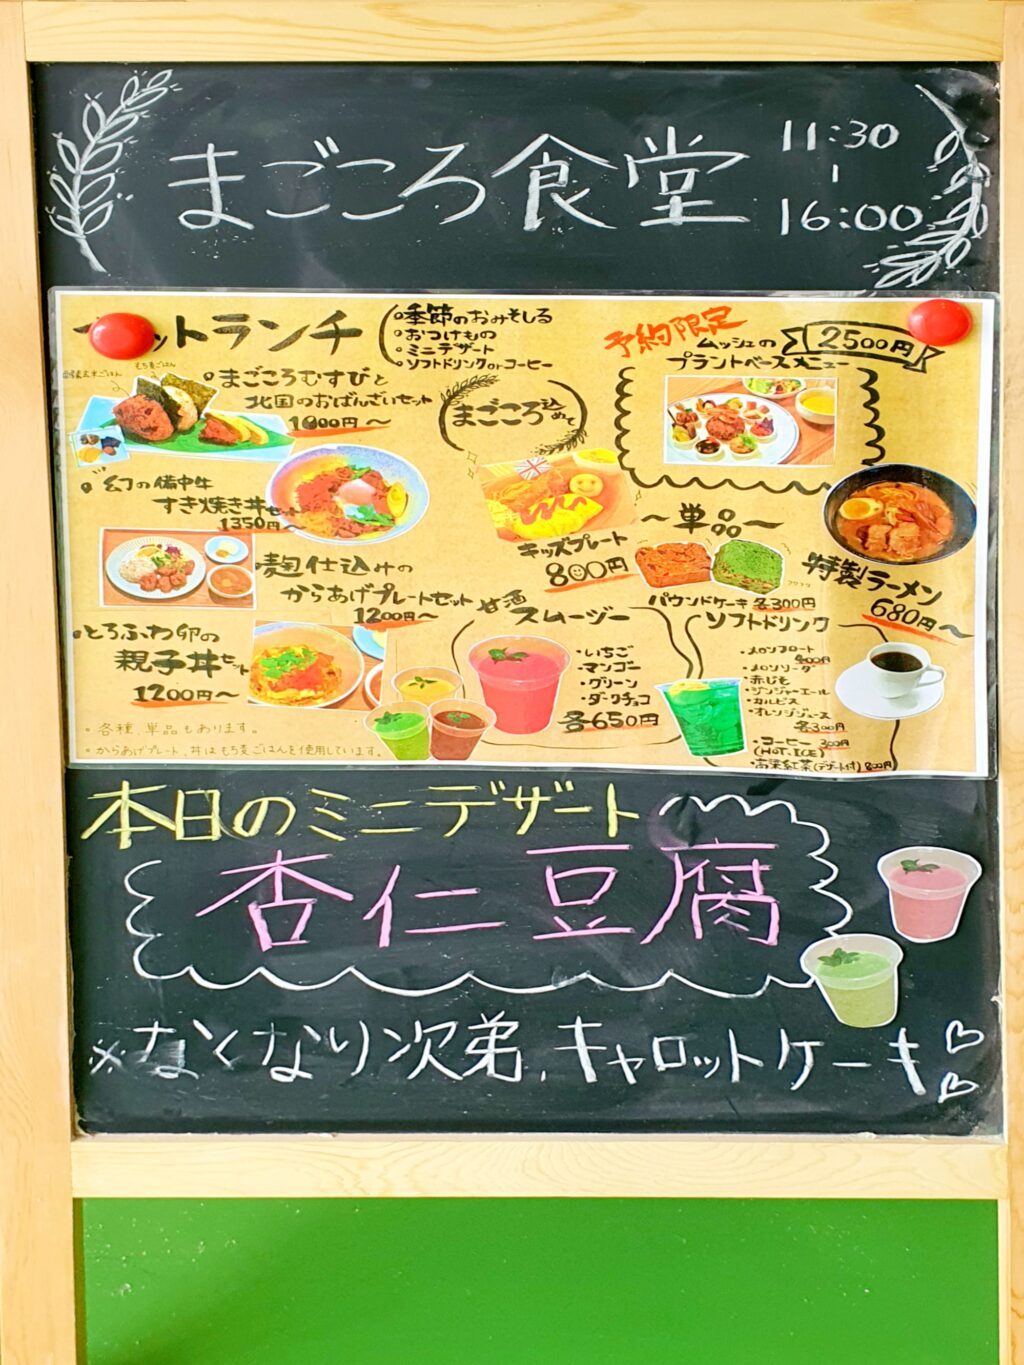 まごころ食堂
11:30
|
16:00
ットランチ
・季節のおみそしる
・おつけもの
・ミニデザート
・ソフトドリンクorコーヒー
予約限定
ムッシェの
プラントベースメニュー
2500円
もち麦ごはん
・まごころむすびと
北国のおばんざいセット
1000円〜
まごころ込めて
・幻の備中牛
すき焼き丼セット
1350円〜
キッズプレート
800円
〜単品〜
パウンドケーキ 各300円
特製ラーメン
680円〜
麹仕込みの
からあげプレートセット
1200円〜
・とろふわ卵の
親子丼セット
1200円〜
・各種、単品もあります。
・からあげプレート、丼はもち麦ごはんを使用しています。
甘酒
スムージー
・いちご
・マンゴー
・グリーン
・ダークチョコ
各650円
ソフトドリンク
・メロンフロート
400円
・メロンソーダ
・赤じそ
・ジンジャーエール
・カルピス
・オレンジジュース
各300円
・コーヒー 300円
(HOT.ICE)
・高梁紅茶(デザート付)800円
本日のミニデザート
杏仁豆腐
※なくなり次弟、キャロットケーキ